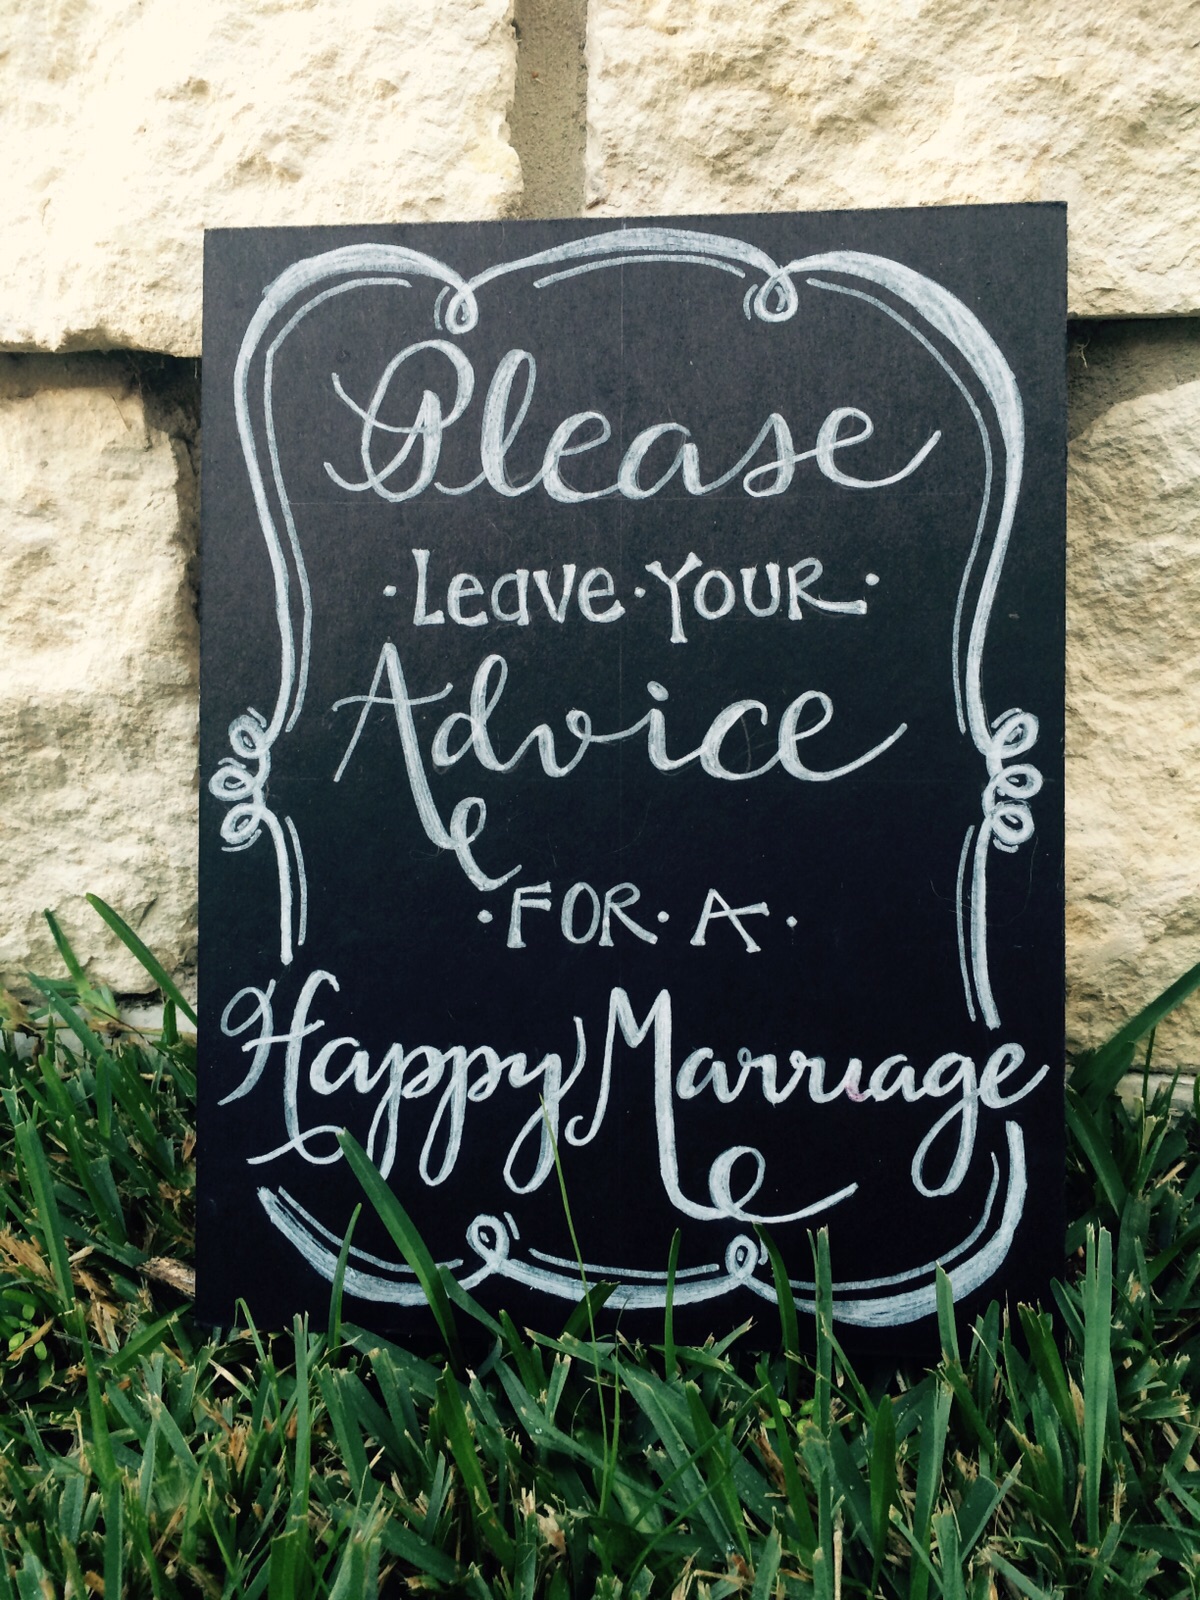 Please
·Leave·YOUR·
Advice
·FOR·A·
Happy Marriage